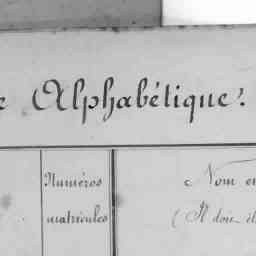 e Alphabétique.
Numéros
matricules
Nom et
(Il doit êt